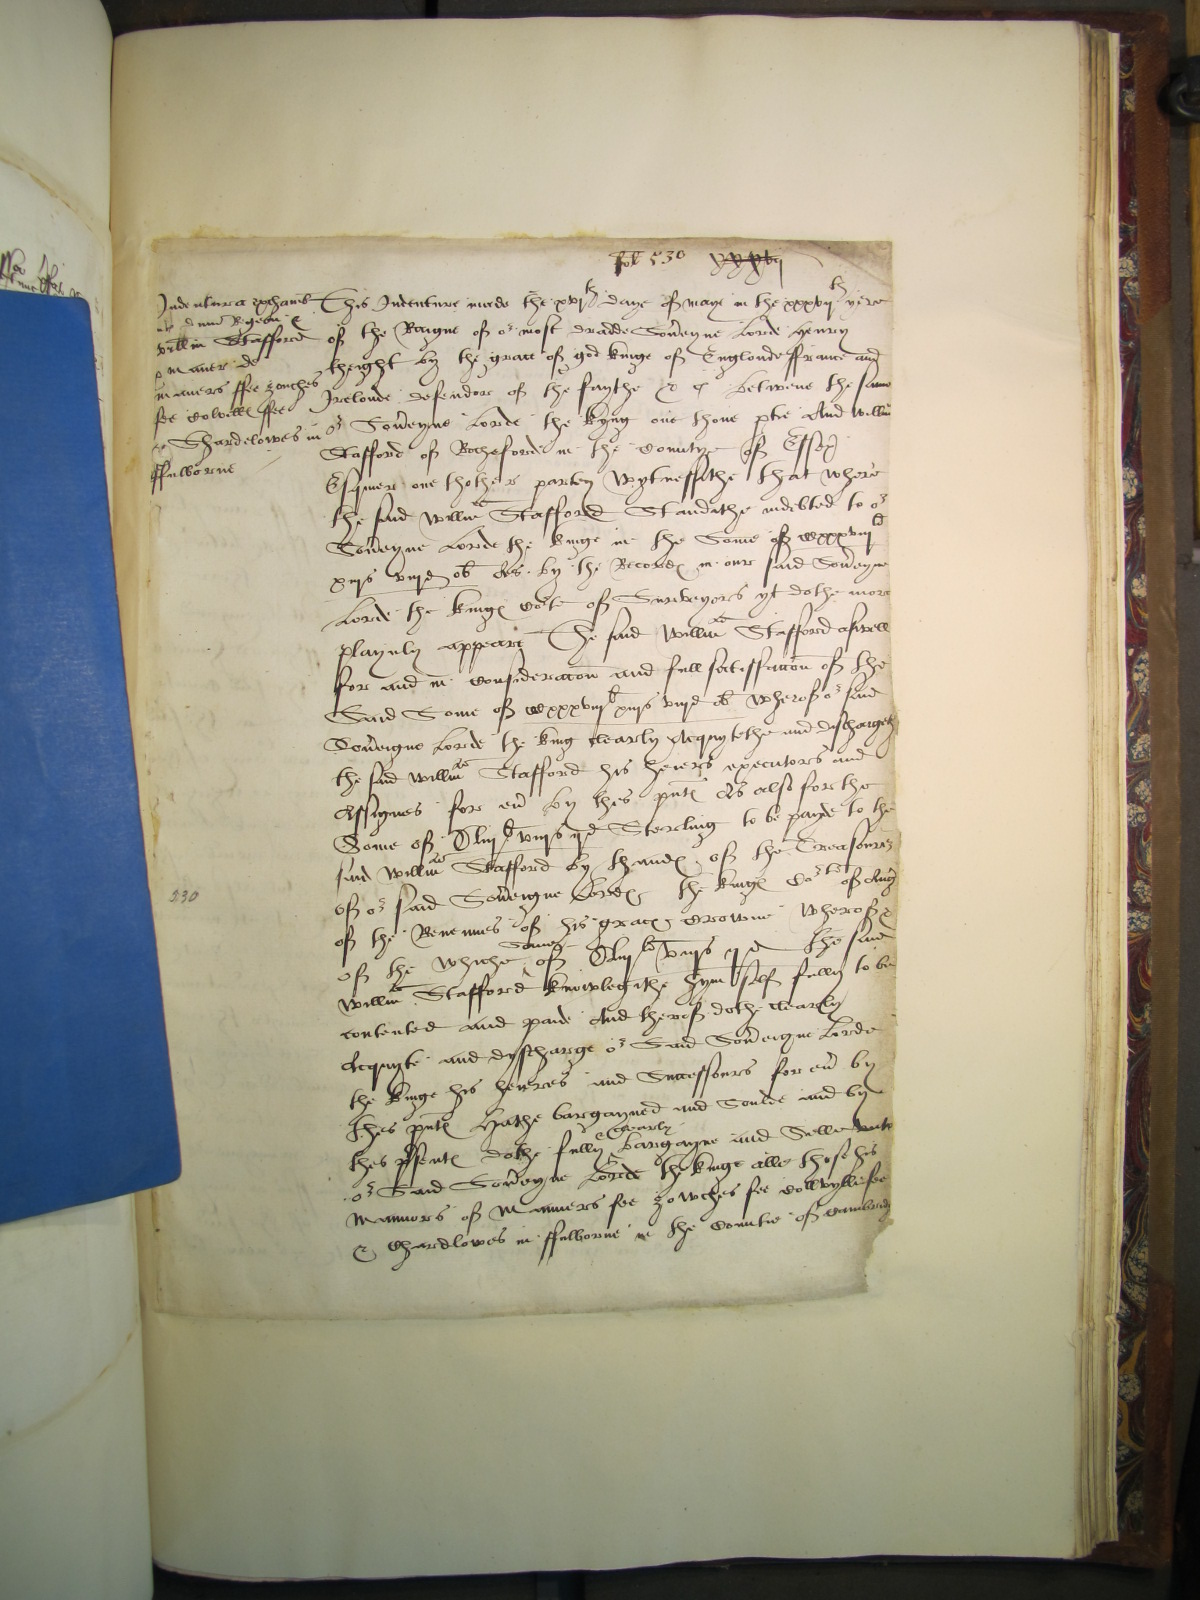 fol 530 xxxvij
Indentura exchamb
int dnm Regem &
Willm Stafford
p maner de
maners ffee zouches
fee Colvilles ffee
& Shardelowes in
ffulborne
This Indenture made the xvjth daye of maye in the xxxvijth yere
of the Raigne of or most dradde Soveryne Lorde Henry
theight by the grace of god kinge of Englonde ffrance and
Irelonde defendor of the faythe &c betwene the same
or Soveryne Lorde the kyng one thone ptie And Willm
Stafford of Rocheford in the Countye of Essex
Esquier one thother partey Wytnessithe that where
the said Willm Stafford Standithe indebted to or
Soveryne Lorde the kinge in the Some of
xiijs viijd ob As by the Recordes in our said Soveryne
Lorde the kinges Corte of Surveyors yt dothe more
playnly appeare The said Willm Stafford aswell
for and in consideracon and full satisfaccon of the
Said Some of xiijs viijd ob Wherof or said
Sovereigne Lorde the king clearly Acquytethe and dischargeth
the said Willm Stafford his heiers executors and
Assignes for ever by thes pntes As also for the
Some of viijs ijd Sterling to be payde to the
said Willm Stafford by thandes of the Treasourer
of or said Sovereigne Lordes the kinges Corte of Augm
of the Revenues of his graces Crowne Wherof &
of the whiche Some of viijs ijd the said
Willm Stafford knowlegithe hym self fully to be
contented and paide And therof dothe clearly
Acquyte and dyscharge or Said Sovereigne Lorde
the kinge his heieres and Successours for ever by
thes pntes Hathe bargayned and Soulde and by
thes psentes dothe fully & Clearly bargayne and Selle unto
or Said Soveryne Lorde the kinge alle those his
Mannors of Manners fee Zowches fee Collvylls fee
& Chardlowes in ffulborne in the Countie of Cambridg
230